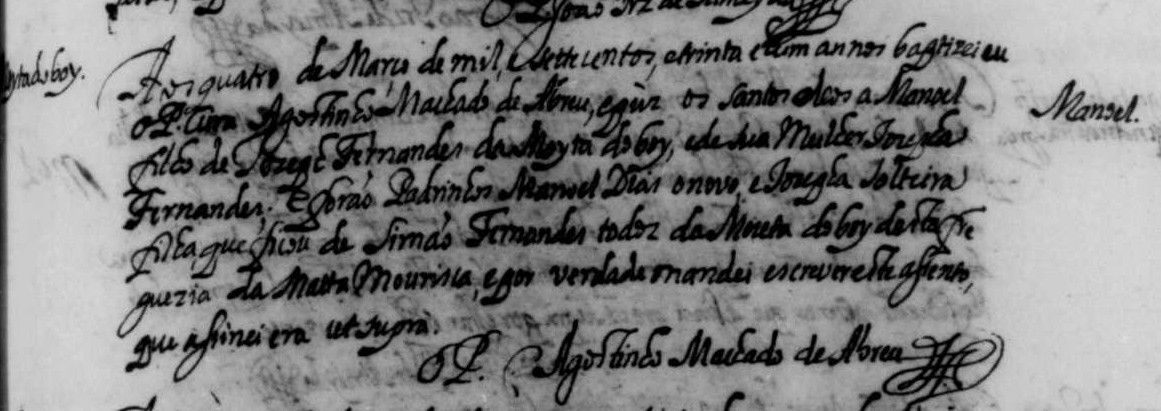 Aos quatro de Marco de mil, e settecentos, e trinta e hum annos bagtizei eu
Moyta do boy.
o P. Cura Agostinho Machado de Abreu, e puz os santos oleos a Manoel
Manoel.
filho de Jozeph Fernandes da Moyta do boy, e de sua Mulher Jozepha
Fernandes. E forão Padrinhos Manoel Dias o novo, e Jozepha Solteira
filha que ficou de Simão Fernandes todoz da Moeta do boy desta fre
guezia da Matta Mourisca, e por verdade mandei escrever este assento,
que assinei era ut supra.
O P. Agostinho Machado de Abreu